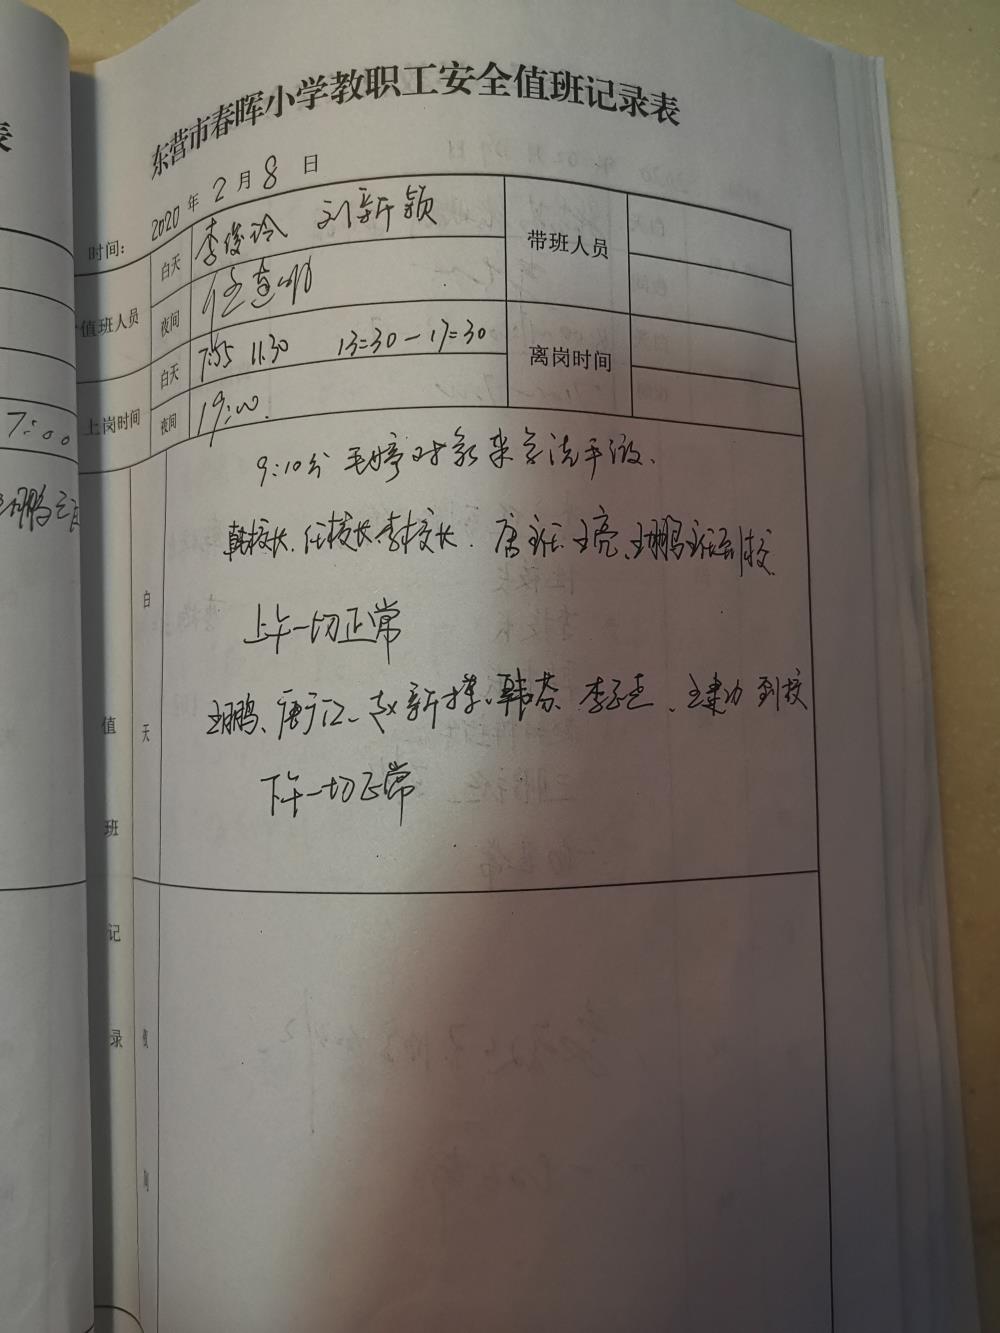 表
7:00
东营市春晖小学教职工安全值班记录表
时间: 2020 年 2 月 8 日
值班人员
白天 李俊玲 刘新颖
夜间 任连明
带班人员
上岗时间
白天 7:55 11:30 13:30-17:30
夜间 19:00.
离岗时间
值班记录
白天
9:10分 毛婷对象来学洗手液、
韩校长、任校长 李校长、唐主任、王亮、王鹏主任到校
上午一切正常
王鹏、唐广江、赵新 韩芬、李 、王建功 到校
下午一切正常
夜间